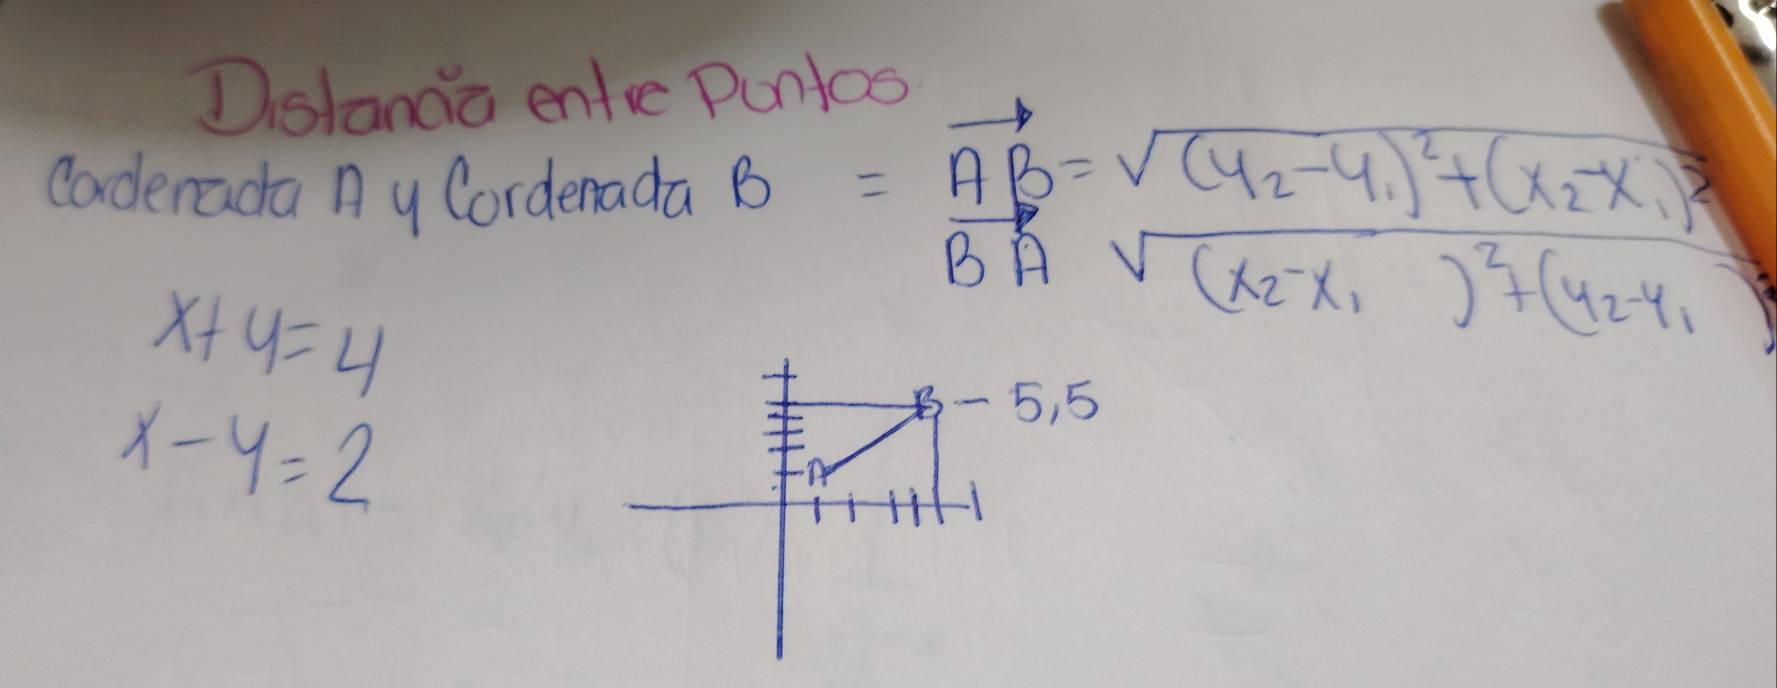 Distancia entre Puntos
Cordenada A y Cordenada B = AB = √(y₂-y₁)²+(x₂-x₁)²
BA √(x₂-x₁ )²+(y₂-y₁ )²
x+y=4
x-y=2
B - 5,5
A